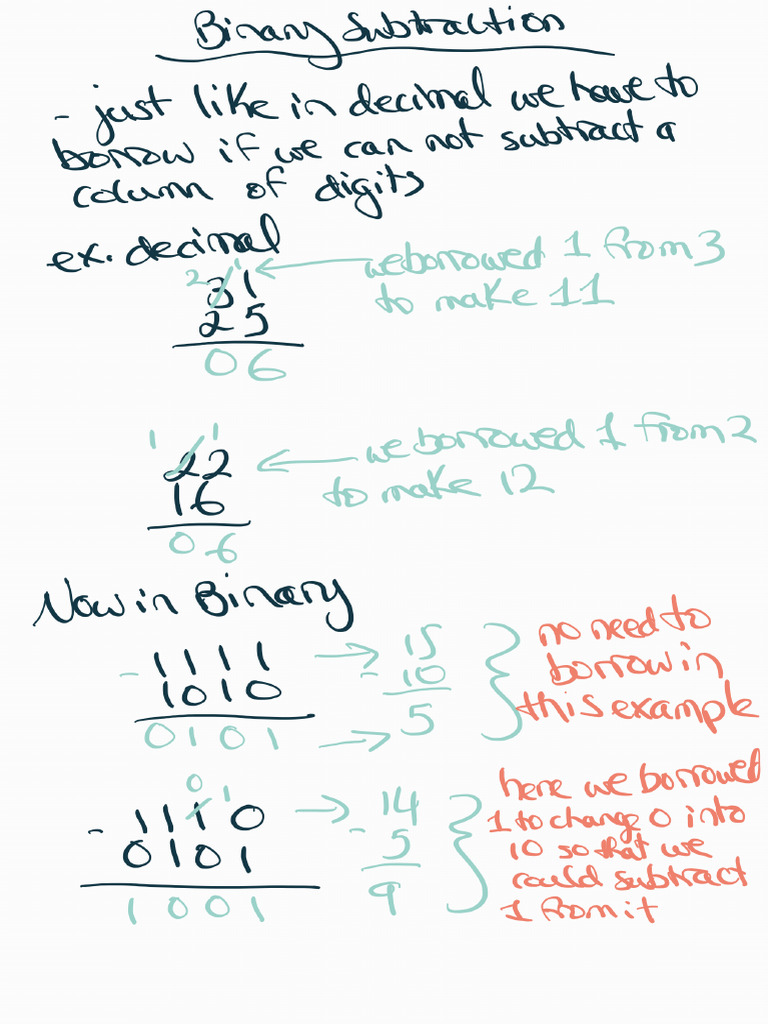 Binary Subtraction
- just like in decimal we have to
borrow if we can not subtract a
column of digits
ex. decimal
we borrowed 1 from 3
to make 11
2 1
31
25
06
1 1
22
16
06
we borrowed 1 from 2
to make 12
Now in Binary
- 1111 → 15
1010 - 10
0101 → 5
no need to
borrow in
this example
0 1
- 1110 → 14
0101 - 5
1001 9
here we borrowed
1 to change 0 into
10 so that we
could subtract
1 from it